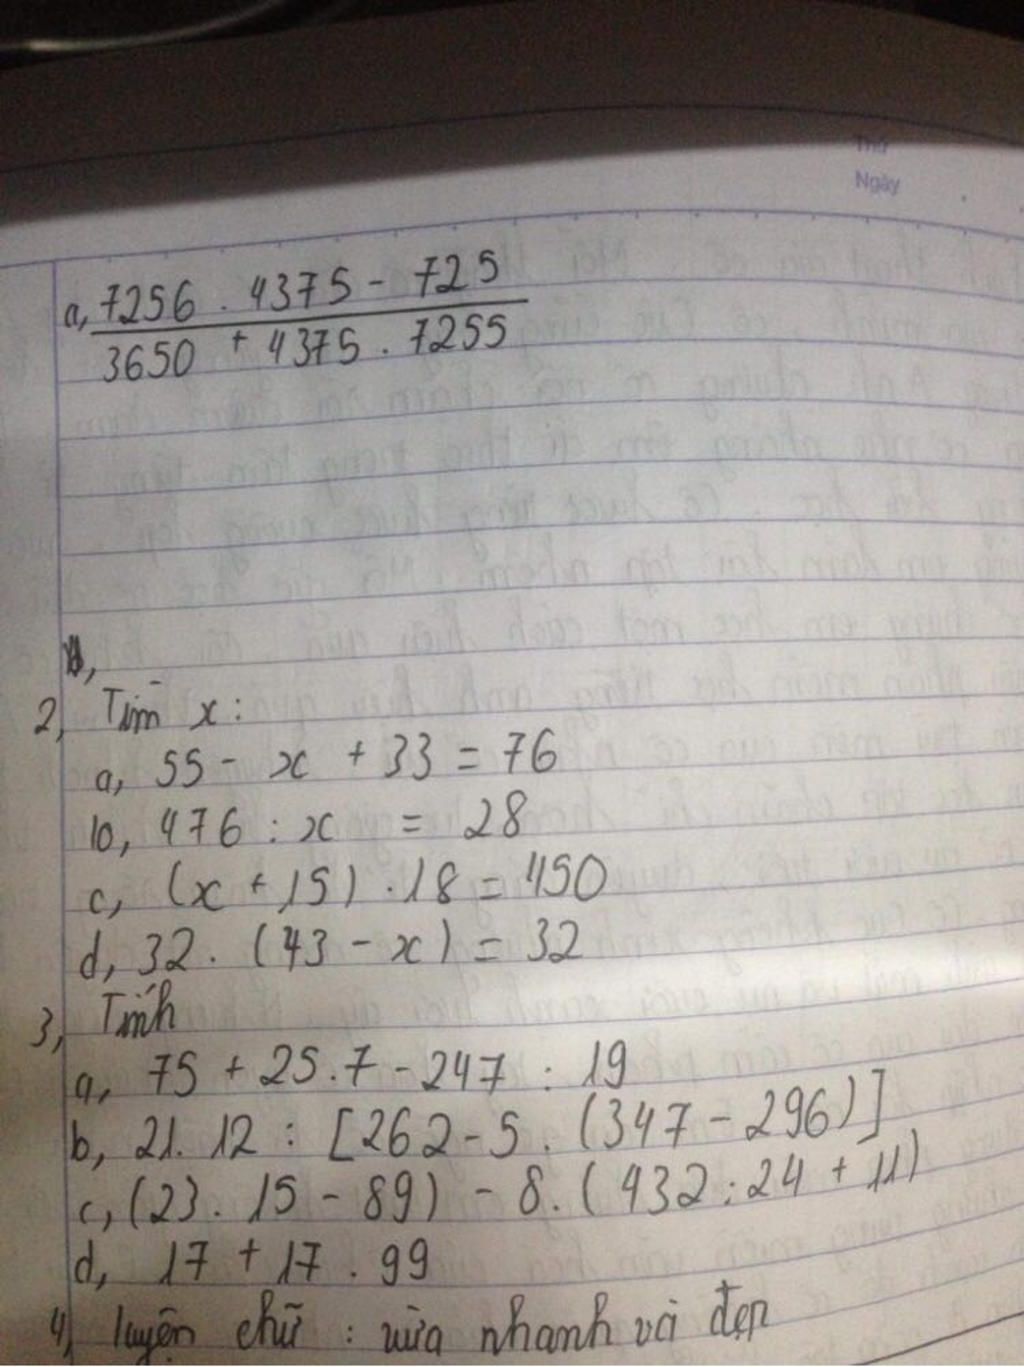 Thứ
Ngày
a, 7256 . 4375 - 725
3650 + 4375 . 7255
b,
2, Tìm x:
a, 55 - x + 33 = 76
b, 476 : x = 28
c, (x + 15) . 18 = 450
d, 32 . (43 - x) = 32
3, Tính
a, 75 + 25.7 - 247 : 19
b, 21. 12 : [262 - 5 . (347 - 296)]
c, (23 . 15 - 89) - 8. (432 : 24 + 11)
d, 17 + 17 . 99
4, luyện chữ : vừa nhanh và đẹp